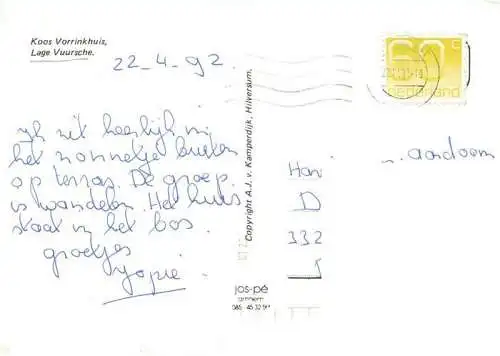 Koos Vorrinkhuis,
Lage Vuursche.
22-4-92.
ik zit heerlijk in
het zonnetje buiten
op terras. De groep
is wandelen. Het huis
staat in het bos.
groetjes
Copyright A.J. v. Kamperdijk, Hilversum.
jos-pé
arnhem
60 c
nederland
D
332